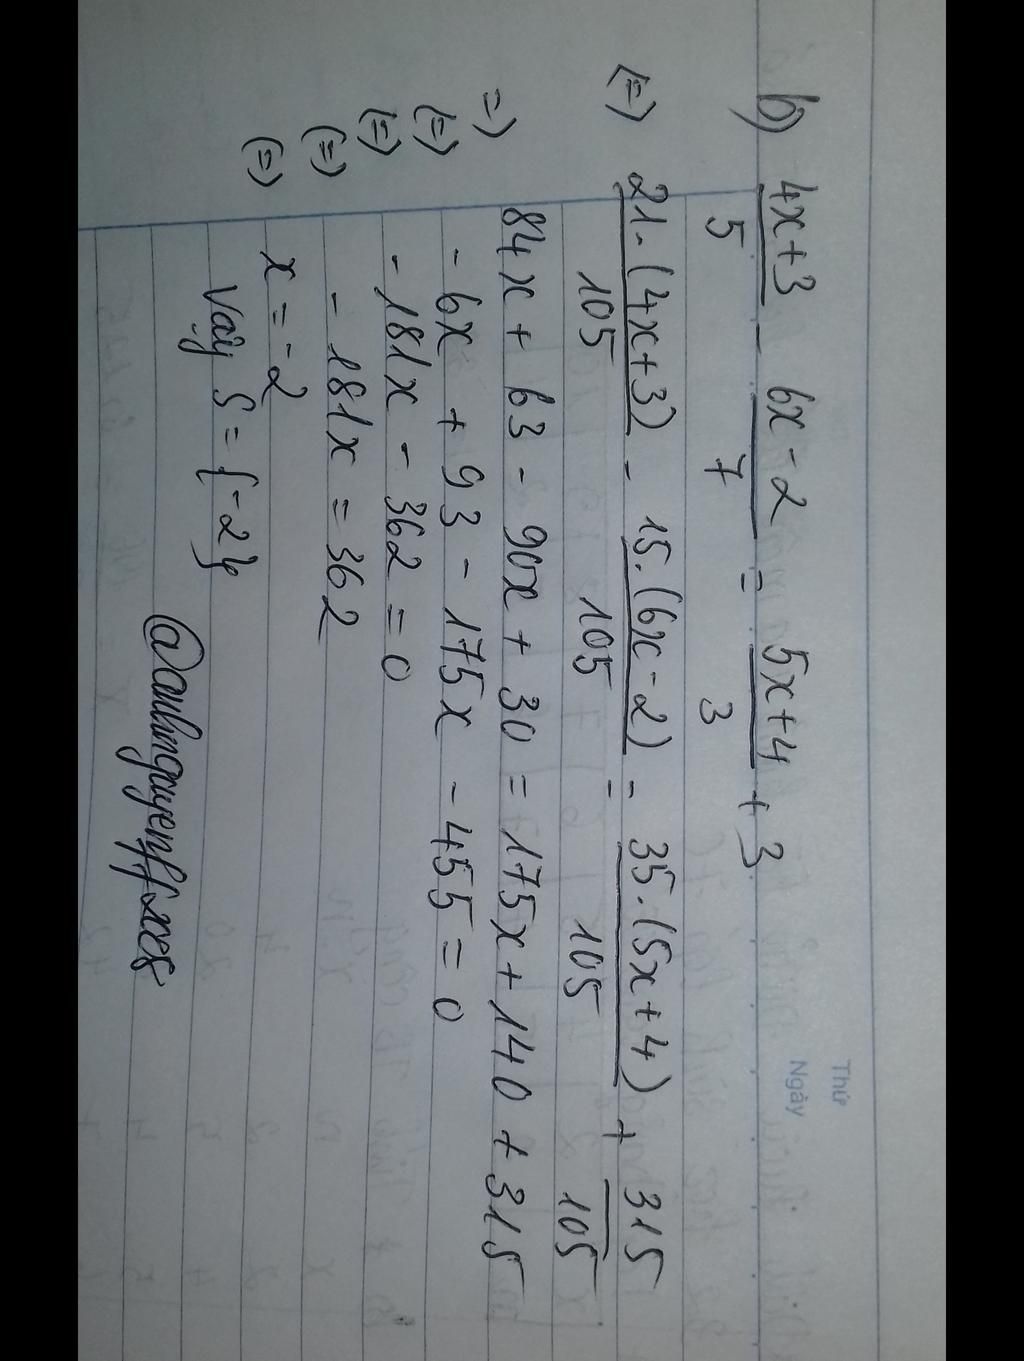 Thứ
Ngày
b) 4x+3 / 5 - 6x-2 / 7 = 5x+4 / 3 + 3
(=) 21.(4x+3) / 105 - 15.(6x-2) / 105 = 35.(5x+4) / 105 + 315 / 105
=) 84x + 63 - 90x + 30 = 175x + 140 + 315
(=) - 6x + 93 - 175x - 455 = 0
(=) - 181x - 362 = 0
(=) - 181x = 362
(=) x = -2
Vậy S = {-2}